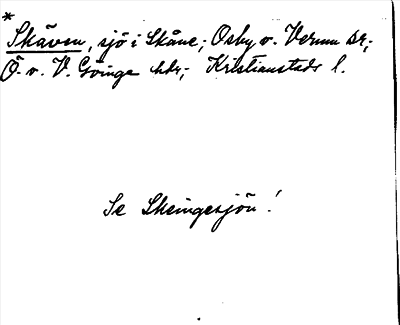 *
Skäven, sjö i Skåne; Osby o. Verum sr;
Ö. o. V. Göinge hdr; Kristianstads l.
Se Skeingesjön!